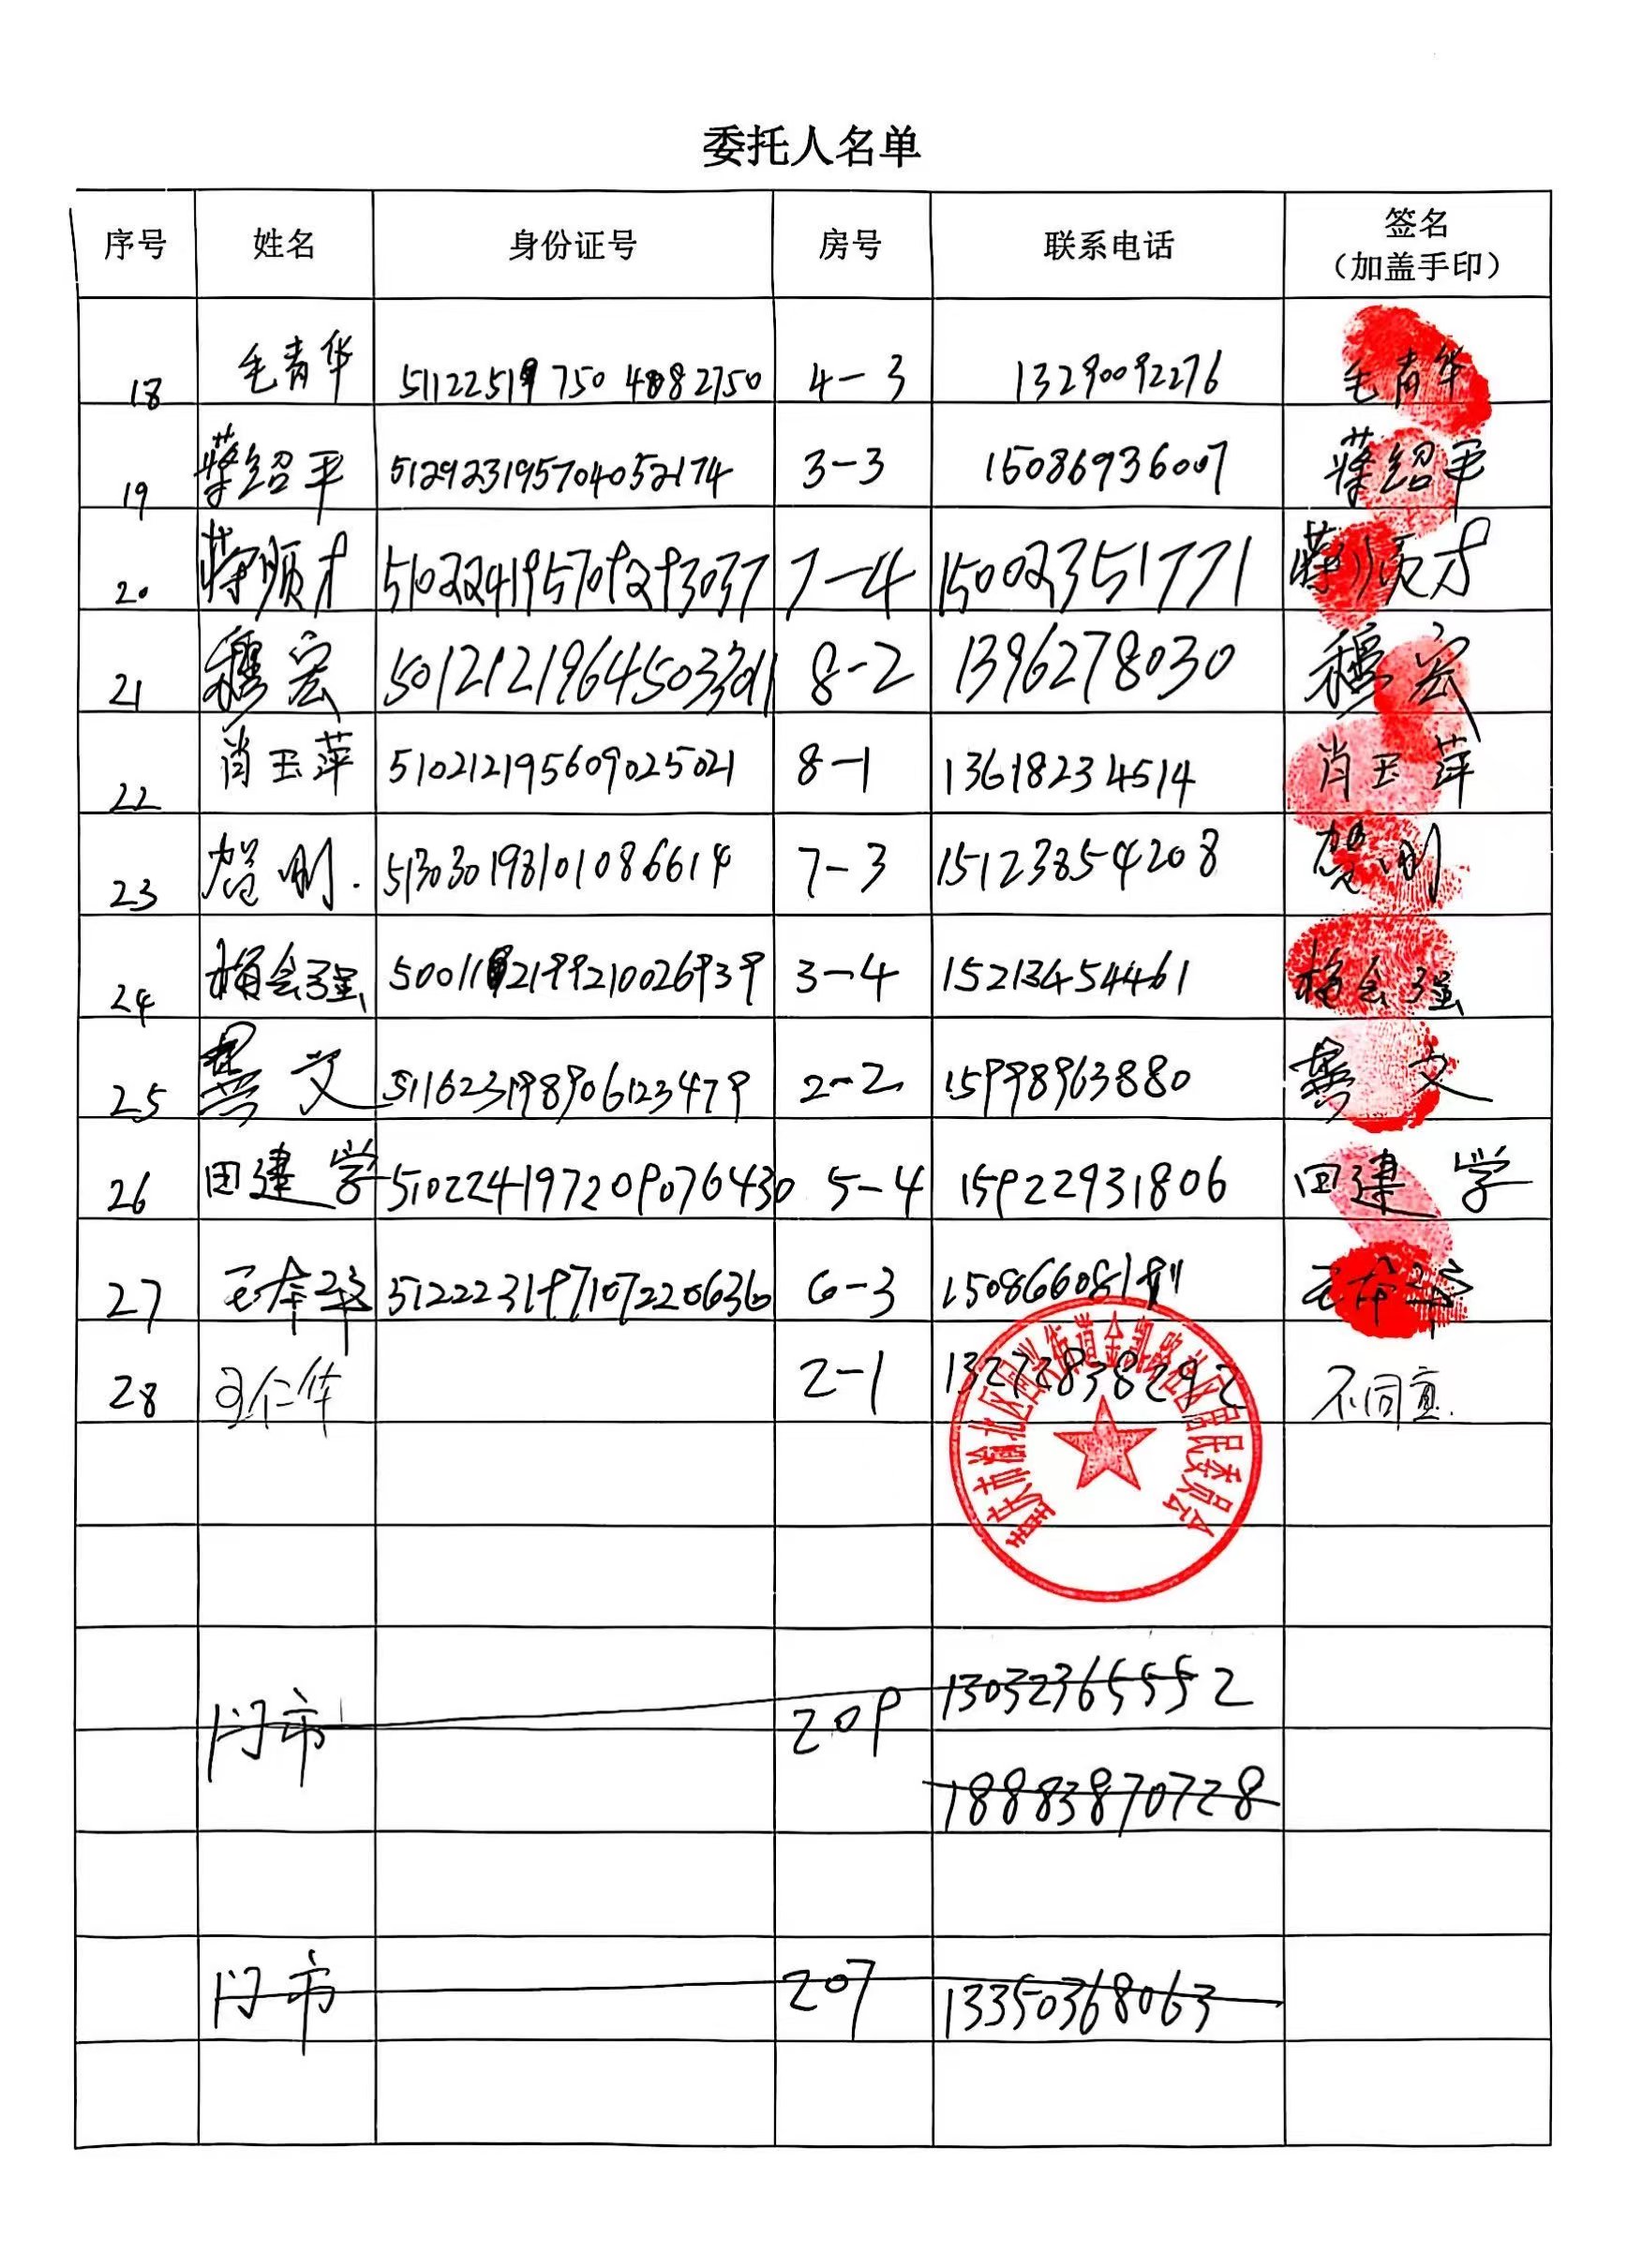 委托人名单
序号 姓名 身份证号 房号 联系电话 签名
（加盖手印）
18 毛青华 4-3 13290092276 毛青华
19 蒋绍平 512923195704052174 3-3 15086936007 蒋绍平
20 蒋顺才 7-4 15002351771 蒋顺才
21 穆宏 8-2 1396278030 穆宏
22 肖玉萍 510212195609025021 8-1 13618234514 肖玉萍
23 贺刚 513030198101086614 7-3 15123854208 贺刚
24 杨会强 3-4 15213454461 杨会强
25 文 511623198906123479 2-2 15998963880 文
26 田建学 510224197209076430 5-4 15922931806 田建学
27 王本华 512223197107220636 6-3 王本华
28 仁华 2-1 13272838292 不同意.
重庆市渝北区回兴街道金凯路社区居民委员会
门市 209 13032365552
18883870728
门市 207 13350368063